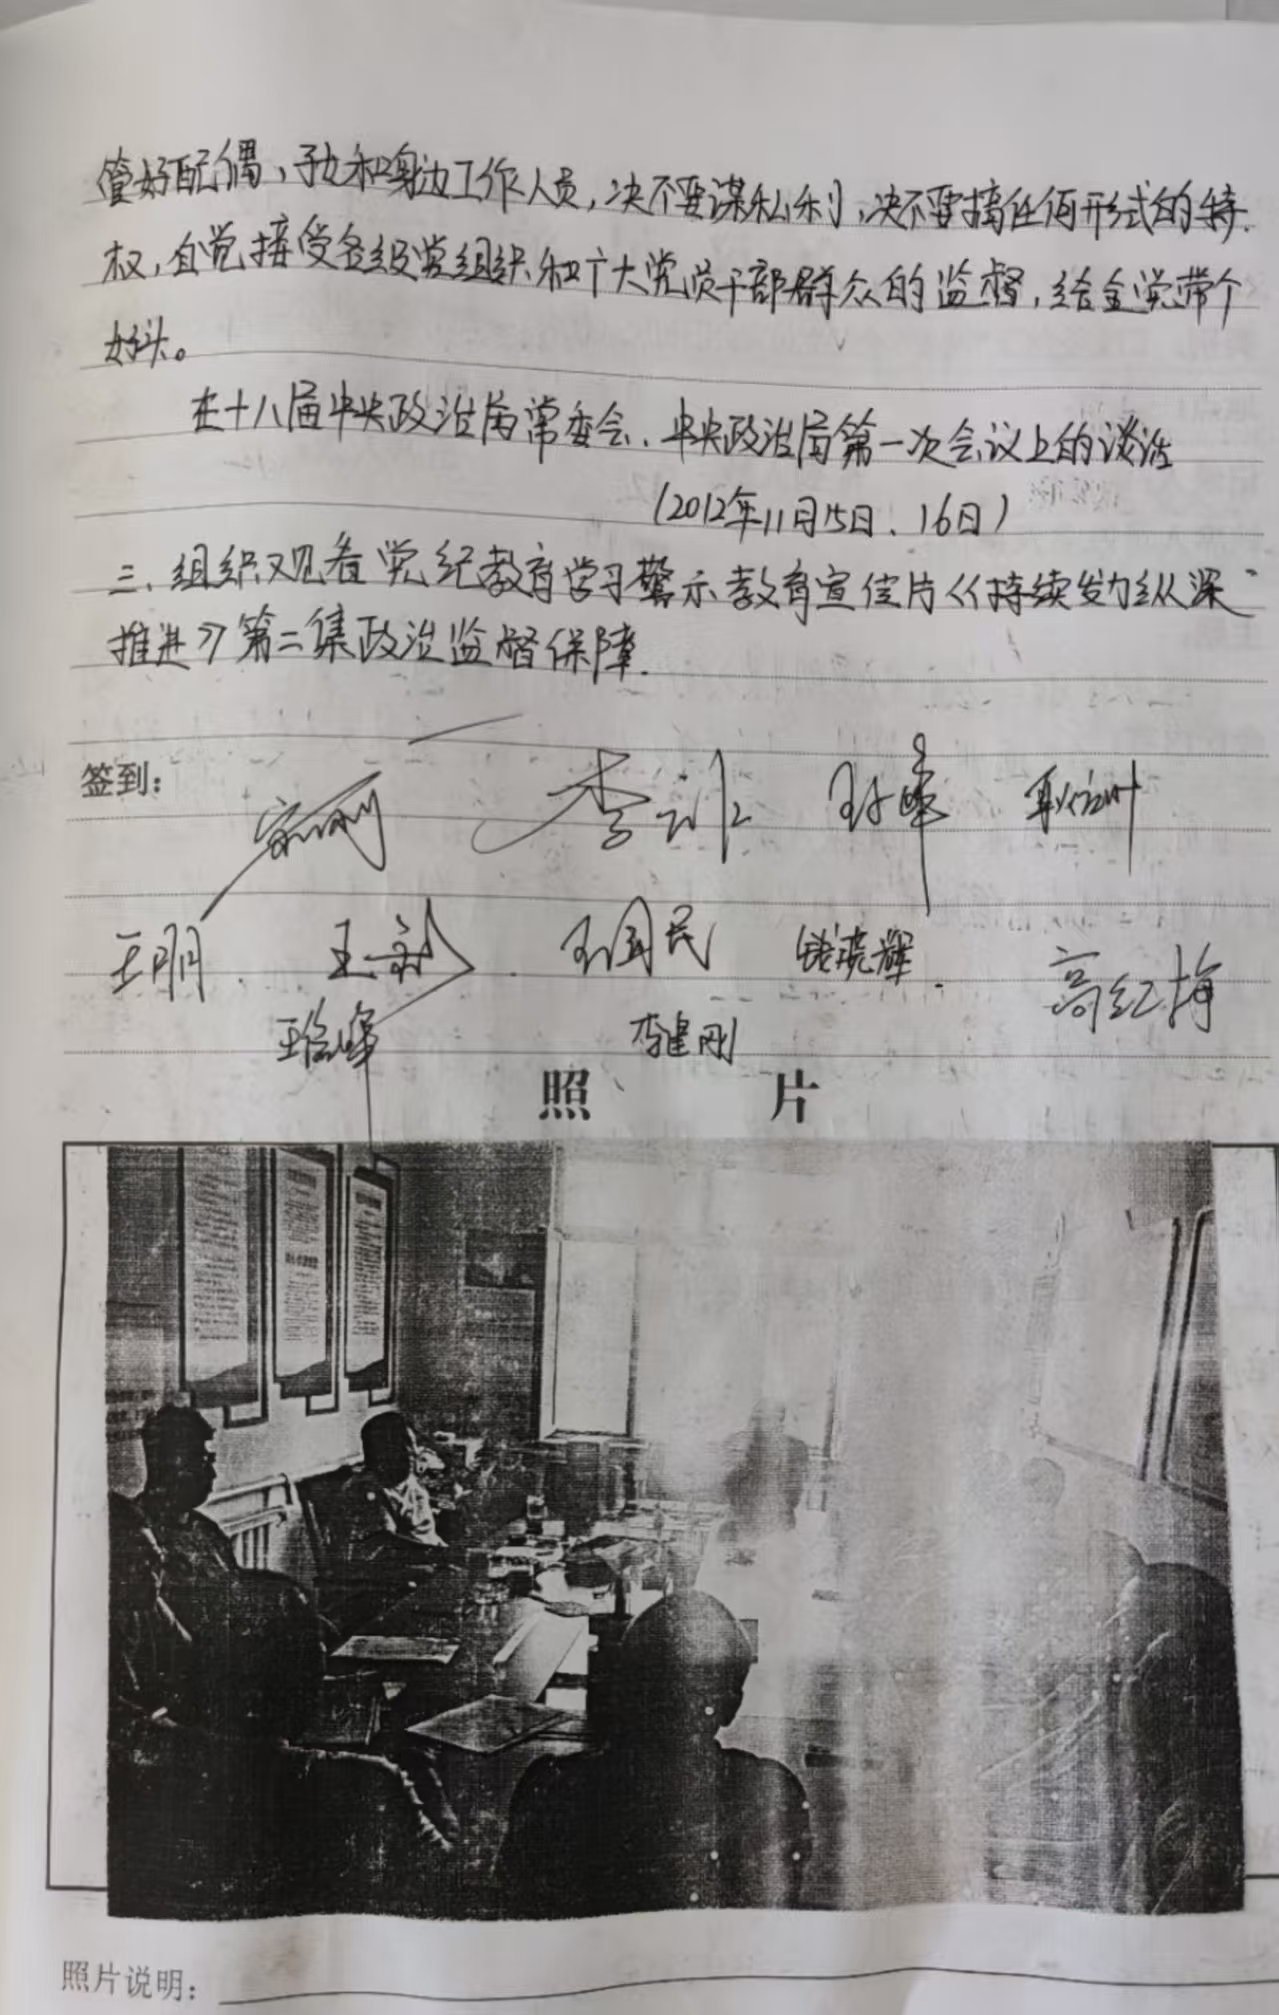 管好配偶、子女和身边工作人员,决不要谋私利,决不要搞任何形式的特
权,自觉接受各级党组织和广大党员干部群众的监督,给全党带个
好头。
在十八届中央政治局常委会、中央政治局第一次会议上的谈话
(2012年11月15日、16日)
三、组织观看党纪教育学习警示教育宣传片《持续发力纵深
推进》第二集政治监督保障.
签到:
王朋 王国民 钱晓辉 高红梅
李建刚
照 片
照片说明: